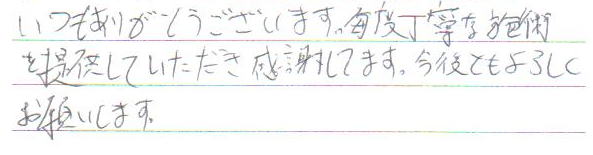 いつもありがとうございます。毎度丁寧な施術
を提供していただき感謝してます。今後ともよろしく
お願いします。